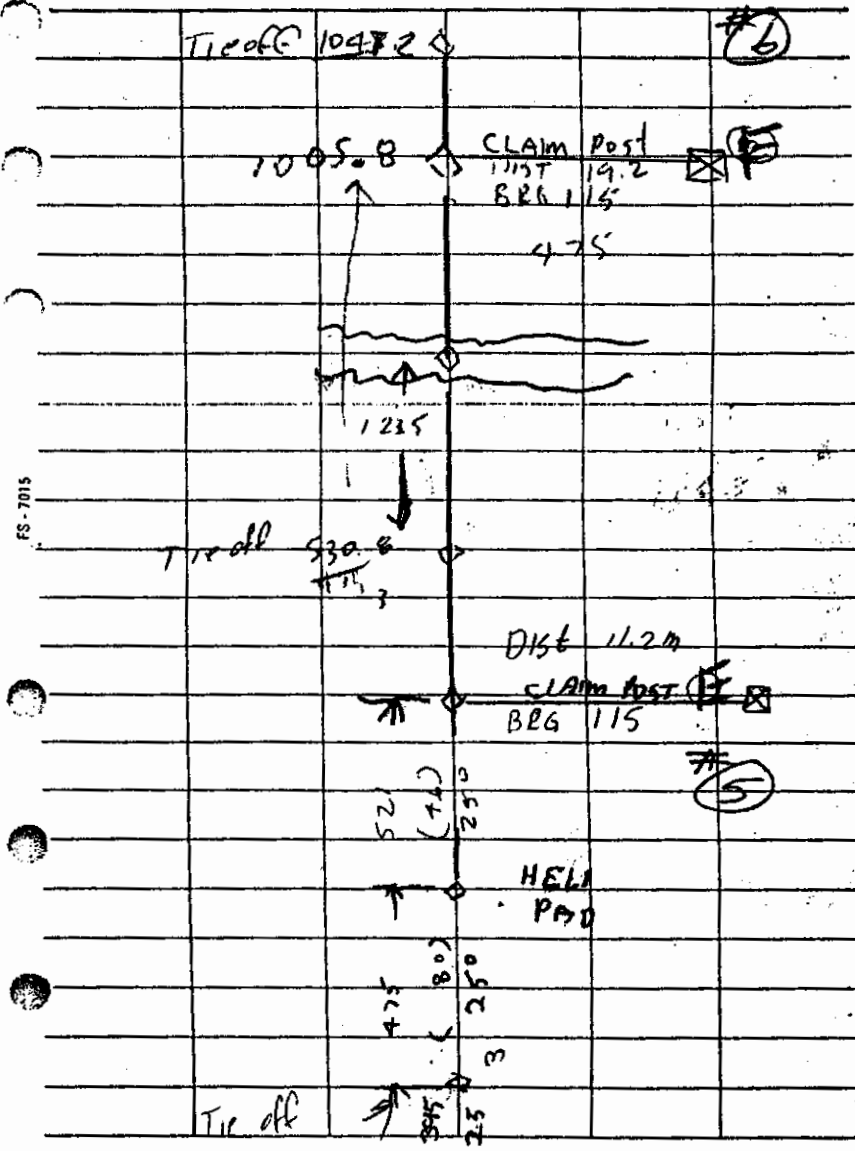 #6
Tie off 1047.2
1005.8
CLAIM Post
DIST 19.2
BRG 115
475
1235
FS - 7015
Tie off 530.8
3
DISt 11.2m
CLAIM POST
BRG 115
#5
521
(46)
25°
HELI
PAD
475
(80)
25°
3
Tie off
395
25